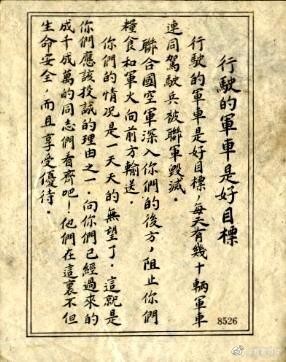 行駛的軍車是好目標
行駛的軍車是好目標，每天有幾十輛軍車
連同駕駛兵被聯軍毀滅．
聯合國空軍深入你們的後方，阻止你們
糧食和軍火向前方輸送．
你們的情况是一天天的無望了．這就是
你們應該投誠的理由之一．向你們已經過來的
成千成萬的同志們看齊吧！他們在這裏不但
生命安全，而且享受優待．
8526